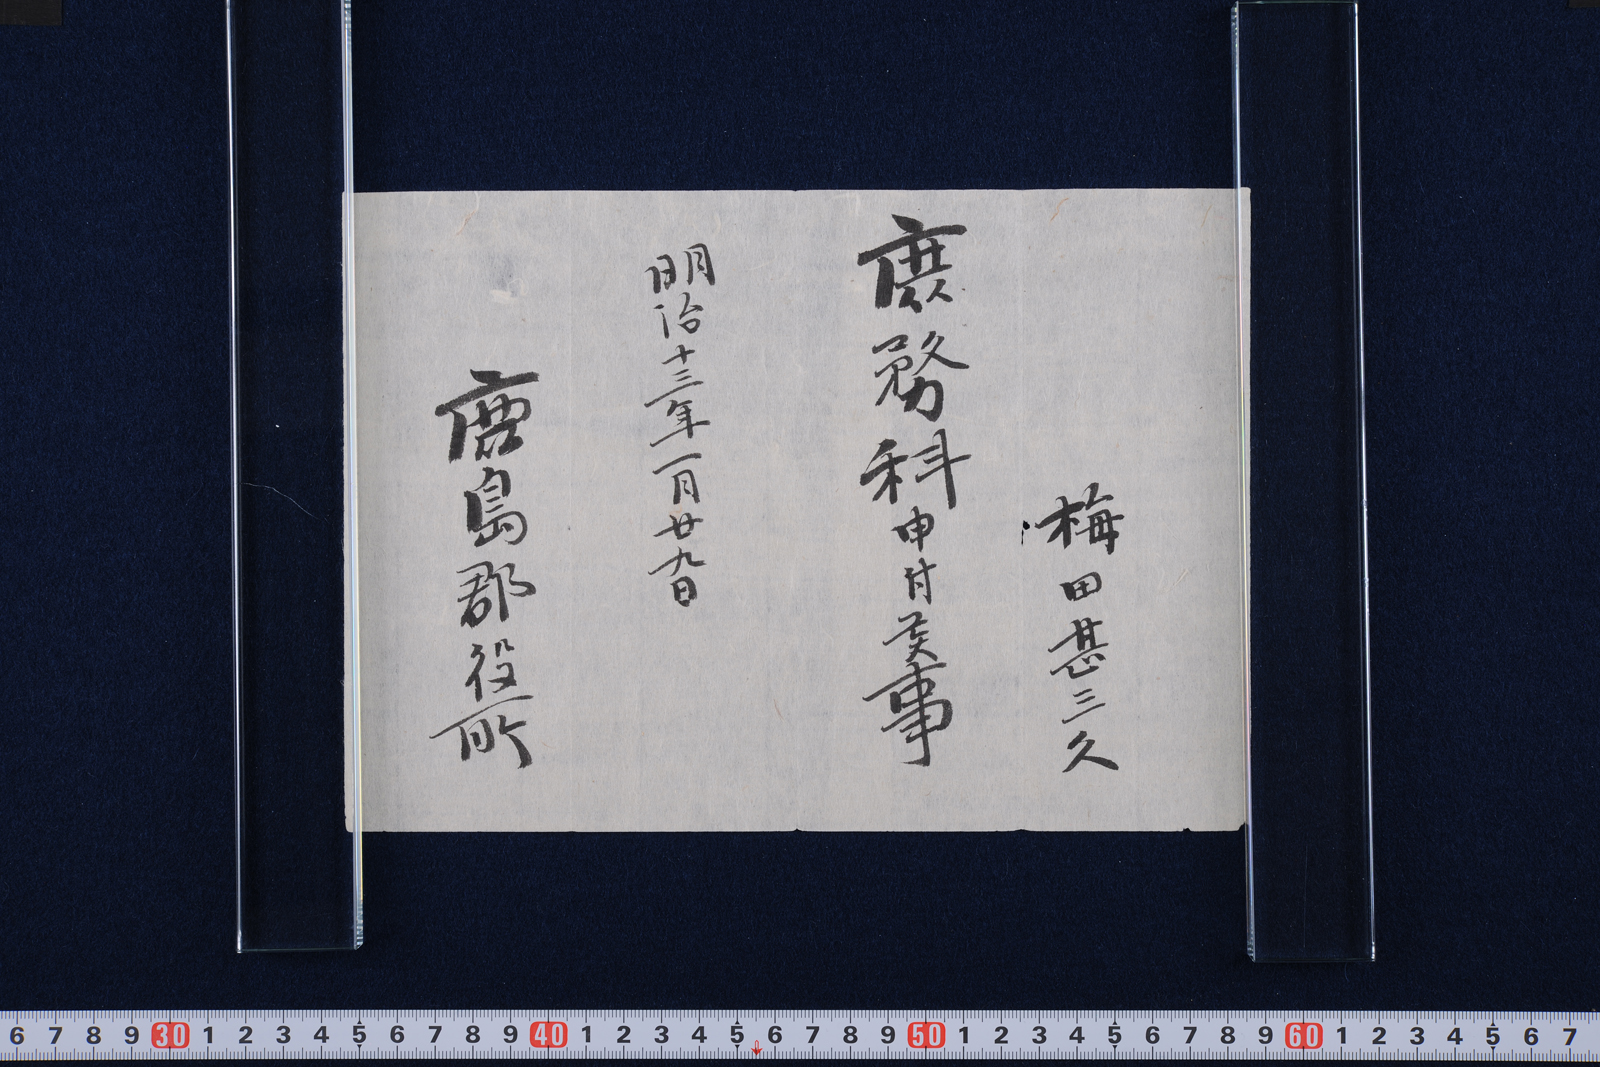 梅田甚三久
庶務科申付候事
明治十三年一月廿九日
鹿島郡役所
6 7 8 9 30 1 2 3 4 5 6 7 8 9 40 1 2 3 4 5 6 7 8 9 50 1 2 3 4 5 6 7 8 9 60 1 2 3 4 5 6 7